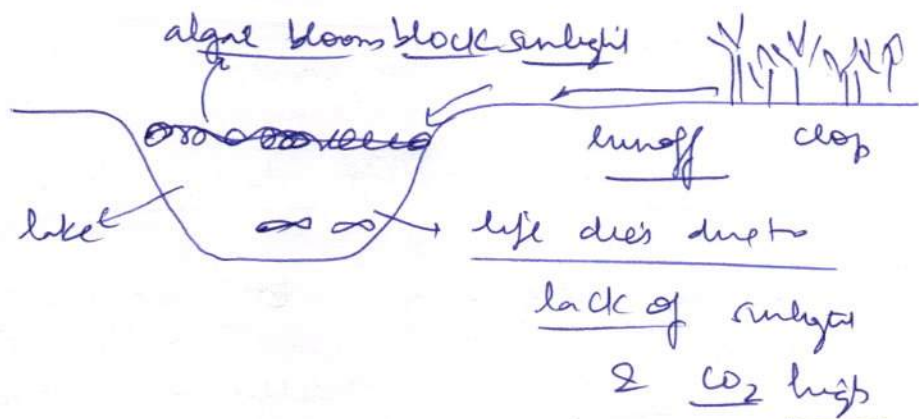 algae blooms block sunlight
runoff crop
lake
life dies due to
lack of sunlight
& CO2 high